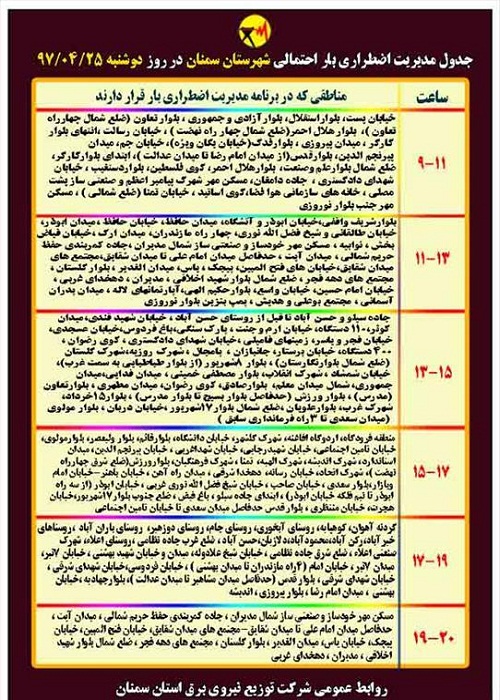 جدول مدیریت اضطراری بار احتمالی شهرستان سمنان در روز دوشنبه ۹۷/۰۴/۲۵
ساعت
مناطقی که در برنامه مدیریت اضطراری بار قرار دارند
۹-۱۱
خیابان پست، بلوار استقلال، بلوار آزادی و جمهوری، بلوار تعاون (ضلع شمال چهارراه
تعاون)، بلوار هلال احمر(ضلع شمال چهار راه نهضت)، خیابان رسالت، انتهای بلوار
کارگر، میدان پیروزی، بلوار فدک(خیابان یگان ویژه)، خیابان جم، میدان
پیرنجم الدین، بلوار قدس(از میدان امام رضا تا میدان عدالت)، ابتدای بلوار کارگر،
ضلع شمال بلوار علم وصنعت، بلوار هلال احمر، کوی فلسطین، بلوار دستغیب، خیابان
شهدای دادگستری، جاده دامغان، مسکن مهر شهرک پیامبر اعظم و صنعتی ساز پشت
مصلی، خانه های سازمانی هوا فضا، کوی اساتید، خیابان تمنا (ضلع شمالی)، مسکن
مهر جنب بلوار نوروزی
۱۱-۱۳
بلوار شریف واقفی، خیابان ابوذر و آتشگاه، میدان حافظ، خیابان حافظ، میدان ابوذر،
خیابان طالقانی و شیخ فضل الله نوری، چهار راه مازندران، میدان ارک، خیابان فیاض
بخش، نوابیه، مسکن مهر خودساز و صنعتی ساز شمال مدیران، جاده کمربندی حفظ
حریم شمالی، میدان آیت، حدفاصل میدان امام علی تا میدان شقایق، مجتمع های
میدان شقایق، خیابان های فتح المبین، پیچک، یاس، میدان الغدیر، بلوار گلستان،
مجتمع های دهه فجر، ضلع شمال بلوار شهید اخلاقی، مدیران، دهخدای غربی،
خیابان امام حسین، خیابان واسع، بلوار حکیم الهی، آپارتمانهای لاله، میدان پدران
آسمانی، مجتمع بوعلی و هدیش، پمپ بنزین بلوار نوروزی
۱۳-۱۵
جاده سیلو و حسن آباد تا قبل از روستای حسن آباد، خیابان شهید قندی، میدان
کوثر، ۱۱۰ دستگاه، خیابان ارم و جنت، پارک سنگی، باغ فردوس، خیابان عسجدی،
خیابان فجر و یاسر، زمینهای فامیلی، خیابان شهدای دادگستری، کوی رضوان،
۴۰۰ دستگاه، خیابان پرستار، جانبازان، بامچال، شهرک روزیه، شهرک گلستان
(ضلع شمال بلوار نگارستان)، بلوار ۸شهریور (از بلوار طباطبایی به سمت غرب)،
خیابان شمشاد، شهرک انقلاب، بلوار مصطفی خمینی، میدان فدایی، میدان
جمهوری، شمال میدان معلم، بلوار صادق، کوی رضوان، میدان مطهری، بلوار تعاون
(مدرس)، بلوار ورزش (حدفاصل بلوار بسیج تا بلوار مدرس)، بلوار ۱۵خرداد،
شهرک غرب، بلوار علویان، ضلع شمال بلوار ۱۷شهریور، خیابان دربان، بلوار مولوی
(میدان سعدی تا ۳راه فرمانداری سابق)
۱۵-۱۷
منطقه فرودگاه، اردوگاه افاغنه، شهرک گلشهر، خیابان دانشگاه، بلوار قائم، بلوار ولیعصر، بلوار مولوی،
خیابان تامین اجتماعی، خیابان شهید رجایی، خیابان شهداغربی، خیابان پیرنجم الدین، میدان
استاندارد، میدان شهرک اندیشه، شهرک الهیه، تمنا، شهرک فرهنگیان، بلوار ورزش(ضلع شرق چهارراه
نهضت)، شهرک اتحاد، خیابان رسانه، دهخدا شرقی، میدان راه آهن، خیابان باهنر-خیابان امام
خیابان صاحب، خیابان شیخ فضل الله نوری غربی، خیابان ابوذر (از سه راه
ابوذر تا نیم فلکه خیابان ابوذر)، ابتدای جاده سیلو، باغ فیض، ضلع جنوب بلوار ۱۷شهریور، خیابان
هجرت، خیابان منتظری، بلوار قدس حدفاصل میدان سعدی تا خیابان تامین اجتماعی
۱۷-۱۹
گردنه آهوان، کوهپایه، روستای آبخوری، روستای جام، روستای دوزهیر، روستای یاران آباد، روستاهای
خیر آباد، رکن آباد، محمودآباد، دلازیان، حسن آباد، ضلع غرب جاده نظامی، روستای اعلاء، شهرک
صنعتی اعلاء، ضلع شرق جاده نظامی، خیابان شیخ علاءدوله، میدان و خیابان شهید بهشتی، خیابان ۷تیر،
میدان ۷تیر، خیابان امام (۴راه مازندران تا میدان بهشتی)، خیابان فردوسی، خیابان شهدای شرقی،
خیابان شهدای شرقی، بلوار قدس (حدفاصل میدان مشاهیر تا میدان عدالت)، بلوار جهادیه، خیابان
بهشتی، میدان امام رضا، بلوار پیروزی، اندیشه
۱۹-۲۰
مسکن مهر خودساز و صنعتی ساز شمال مدیران، جاده کمربندی حفظ حریم شمالی، میدان آیت،
حدفاصل میدان امام علی تا میدان شقایق-مجتمع های میدان شقایق، خیابان فتح المبین، خیابان
پیچک، خیابان یاس، میدان الغدیر، بلوار گلستان، مجتمع های دهه فجر، ضلع شمال بلوار شهید
اخلاقی، مدیران، دهخدای غربی
روابط عمومی شرکت توزیع نیروی برق استان سمنان